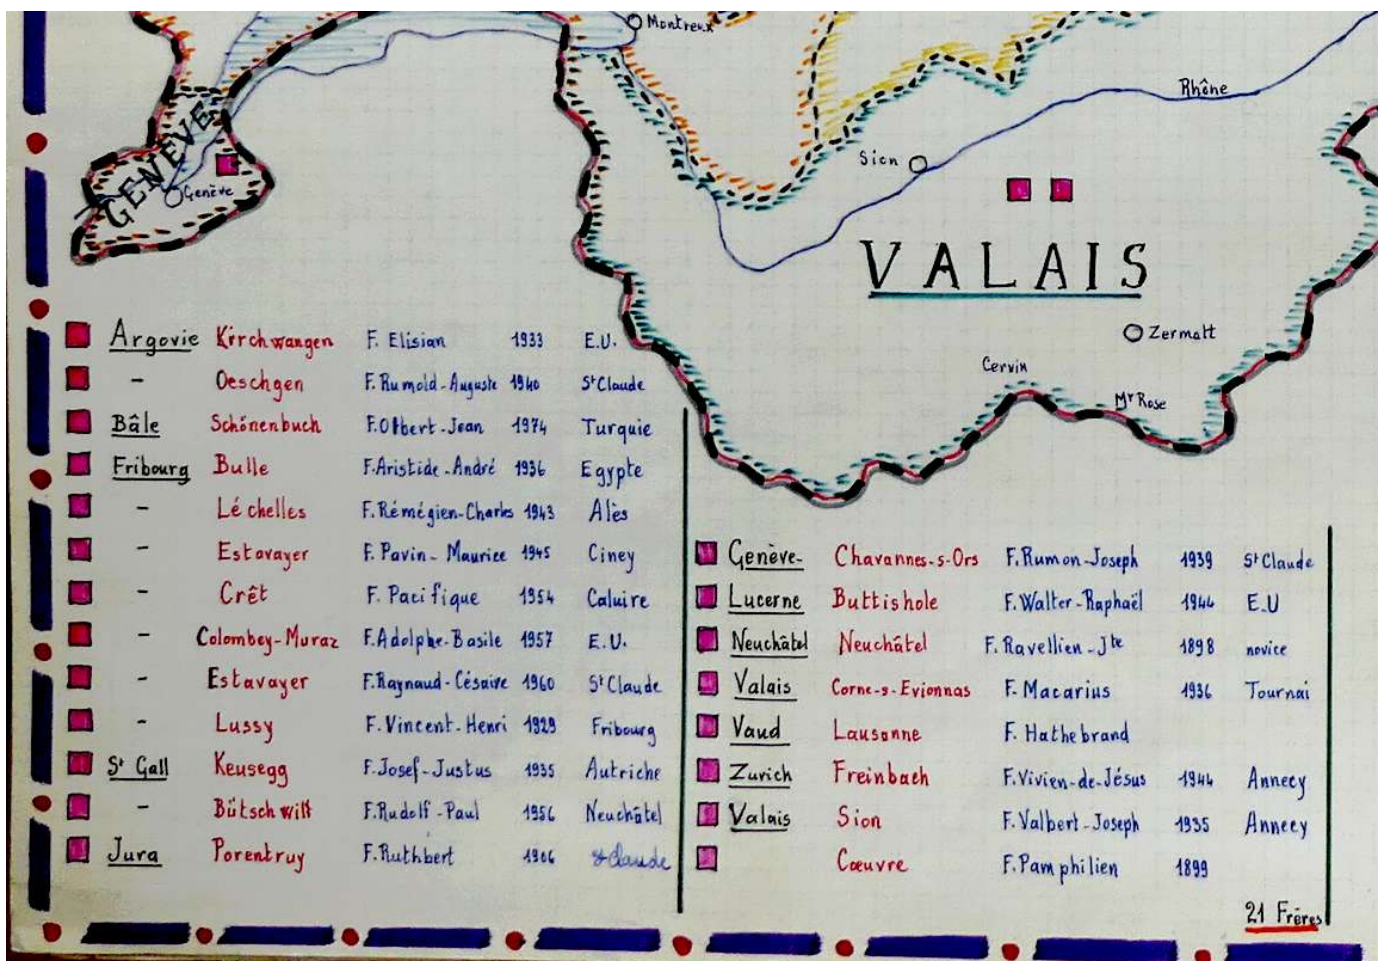 Montreux
Rhône
GENÈVE
Genève
Sion
VALAIS
Zermatt
Cervin
Mt Rose
Argovie Kirchwangen F. Elisian 1933 E.U.
- Oeschgen F. Rumold-Auguste 1940 St Claude
Bâle Schönenbuch F. Olbert-Jean 1974 Turquie
Fribourg Bulle F. Aristide-André 1936 Egypte
- Léchelles F. Rémégien-Charles 1943 Alès
- Estavayer F. Pavin-Maurice 1945 Ciney
- Crêt F. Pacifique 1954 Caluire
- Colombey-Muraz F. Adolphe-Basile 1957 E.U.
- Estavayer F. Raynaud-Césaire 1960 St Claude
- Lussy F. Vincent-Henri 1929 Fribourg
St Gall Keusegg F. Josef-Justus 1935 Autriche
- Bütschwill F. Rudolf-Paul 1956 Neuchâtel
Jura Porentruy F. Ruthbert 1906 St Claude
Genève- Chavannes-s-Ors F. Rumon-Joseph 1939 St Claude
Lucerne Buttishole F. Walter-Raphaël 1944 E.U
Neuchâtel Neuchâtel F. Ravellien-Jte 1898 novice
Valais Corne-s-Evionnas F. Macarius 1936 Tournai
Vaud Lausanne F. Hathebrand
Zurich Freinbach F. Vivien-de-Jésus 1944 Annecy
Valais Sion F. Valbert-Joseph 1935 Annecy
Cœuvre F. Pamphilien 1899
21 Frères